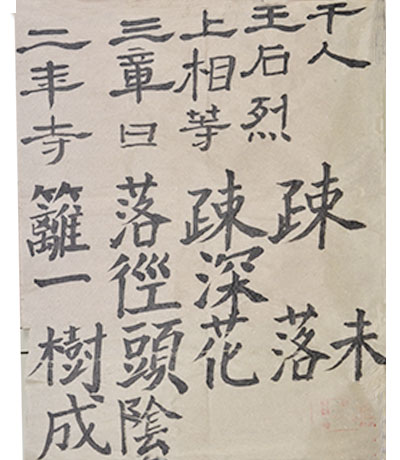 千人未
王石烈疎落
上相等疎深花
三章曰落徑頭陰
二年寺籬一樹成